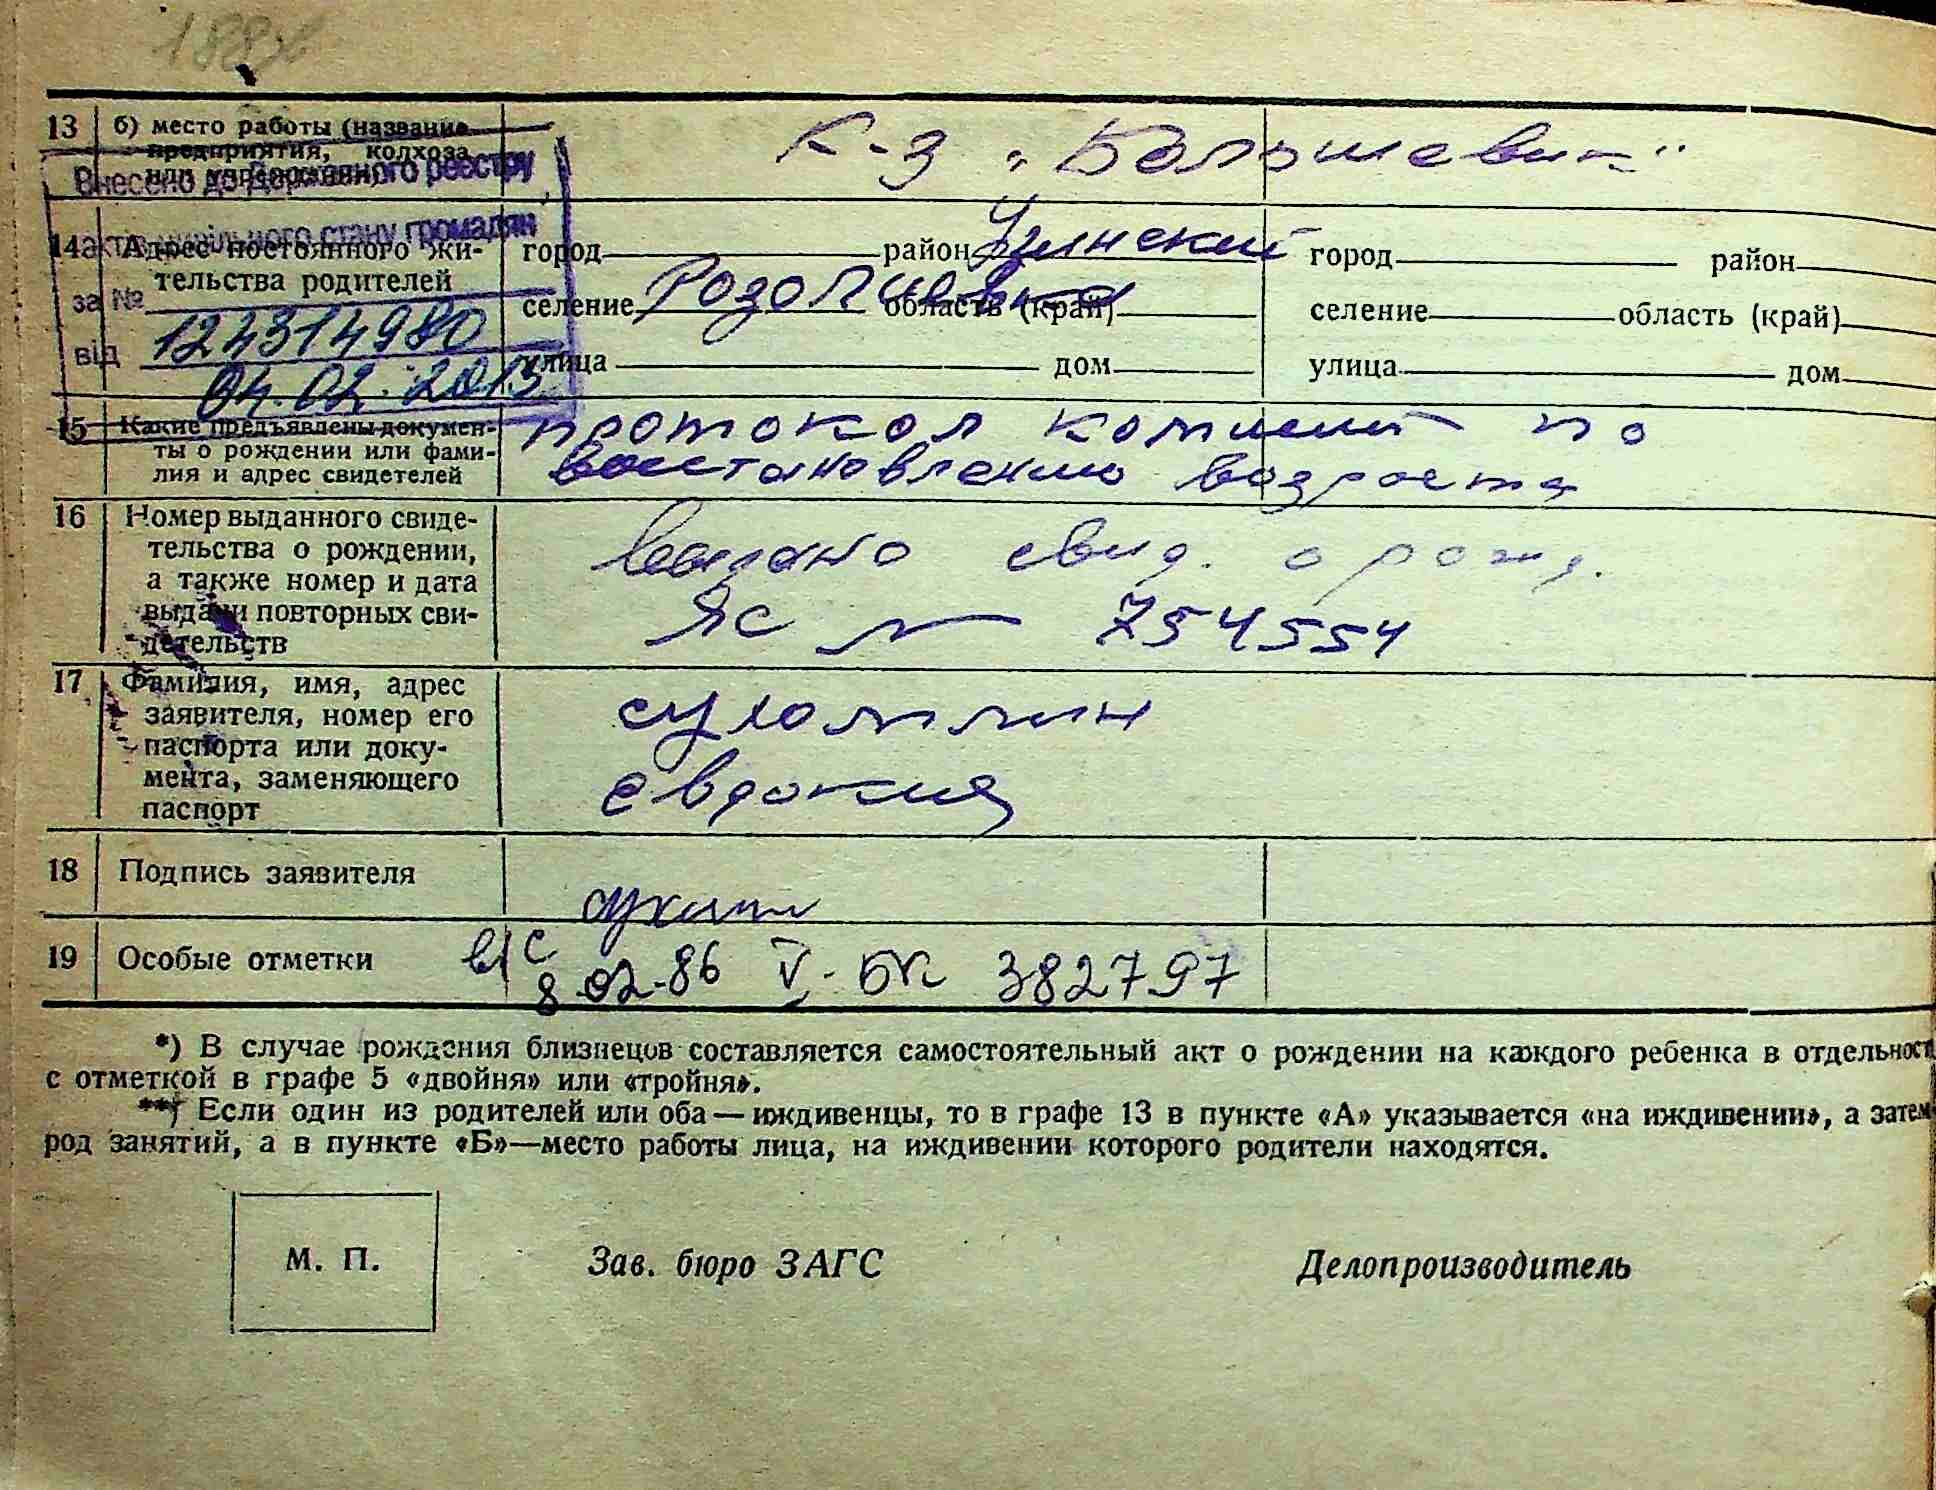 13 б) место работы (название предприятия, колхоза
К-з „Большевик"
Внесено до Державного реєстру
актів цивільного стану громадян
за №
124314980
від
04.02.2013
14 Адрес постоянного жи-
тельства родителей
город район
селение область (край)
улица дом
город район
селение область (край)
улица дом
15 Какие предъявлены докумен-
ты о рождении или фами-
лия и адрес свидетелей
протокол по
восстановлению возраста
16 Номер выданного свиде-
тельства о рождении,
а также номер и дата
выдачи повторных сви-
детельств
выдано свид. о рожд.
ЯС № 754554
17 Фамилия, имя, адрес
заявителя, номер его
паспорта или доку-
мента, заменяющего
паспорт
Евдокия
18 Подпись заявителя
19 Особые отметки
в/с
8.02-86 V-БК 382797
*) В случае рождения близнецов составляется самостоятельный акт о рождении на каждого ребенка в отдельност
с отметкой в графе 5 «двойня» или «тройня».
**) Если один из родителей или оба — иждивенцы, то в графе 13 в пункте «А» указывается «на иждивении», а затем
род занятий, а в пункте «Б»—место работы лица, на иждивении которого родители находятся.
М. П.
Зав. бюро ЗАГС
Делопроизводитель